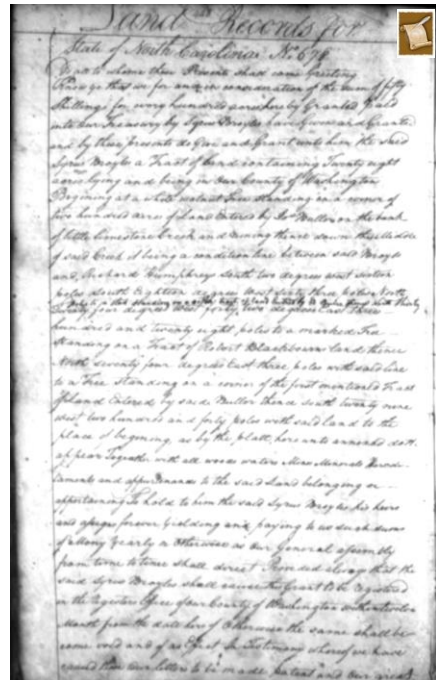 Land Records for
State of North Carolina No 678
To all to whom these Presents shall come Greeting
Know ye that we for and in consideration of the sum of fifty
Shillings for every hundred acres hereby Granted paid
into our Treasury by Syrus Broyles have given and Granted
and by these presents do Give and Grant unto him the said
Syrus Broyles a Tract of Land containing Twenty eight
acres lying and being in Our County of Washington
Begining at a White walnut Tree Standing on a corner of
two hundred acres of land Entered by Muller on the bank
of little limestone Creek and runing thence down the Middle
of said Creek it being a condition line between said Broyles
and Richard Humphreys South two degrees west sixteen
poles South Eighteen degrees West sixty three poles North
poles to a stake standing on a of land entered by thence North Thirty
Twenty four degrees West forty two degrees East three
hundred and twenty eight poles to a marked Tree
Standing on a Tract of Robert Blackbourn land thence
North seventy four degrees East three poles with said line
to a Tree Standing on a corner of the first mentioned Tract
of Land Entered by said Muller thence South twenty nine
west two hundred and forty poles with said land to the
place of begining as by the platt hereunto annexed doth
appear Together with all woods waters Mines Minerals Heredi-
taments and appurtenances to the said Land belonging or
appertaining To hold to him the said Syrus Broyles his heirs
and assigns forever Yielding and paying to us such sums
of Money Yearly or Otherwise as Our General assembly
from time to time shall direct Provided always that the
said Syrus Broyles shall cause this Grant to be Registered
in the Registers Office of our County of Washington within twelve
Month from the date hereof Otherwise the same shall be-
come void and of no Effect In Testimony whereof we have
caused these our letters to be made patent and Our great